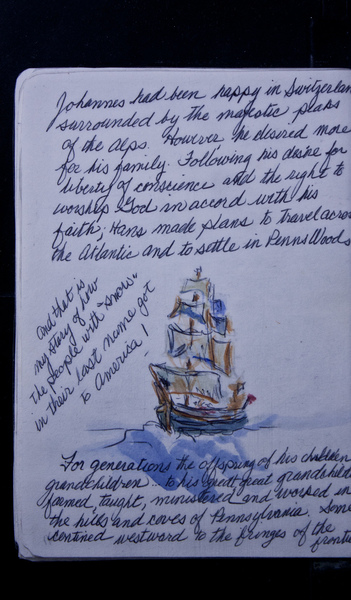 Johannes had been happy in Switzerlan
surrounded by the majestic peaks
of the Alps. However he desired more
for his family. Following his desire for
liberty of conscience and the right to
worship God in accord with his
faith, Hans made plans to travel across
the Atlantic and to settle in Penns Woods
And that is
my story of how
the people with "snow"
in their last name got
to America!
For generations the offspring of his children
grandchildren... to his great great grandchild
farmed, taught, ministered and worked in
the hills and coves of Pennsylvania. Some
contined westward to the fringes of the
frontie